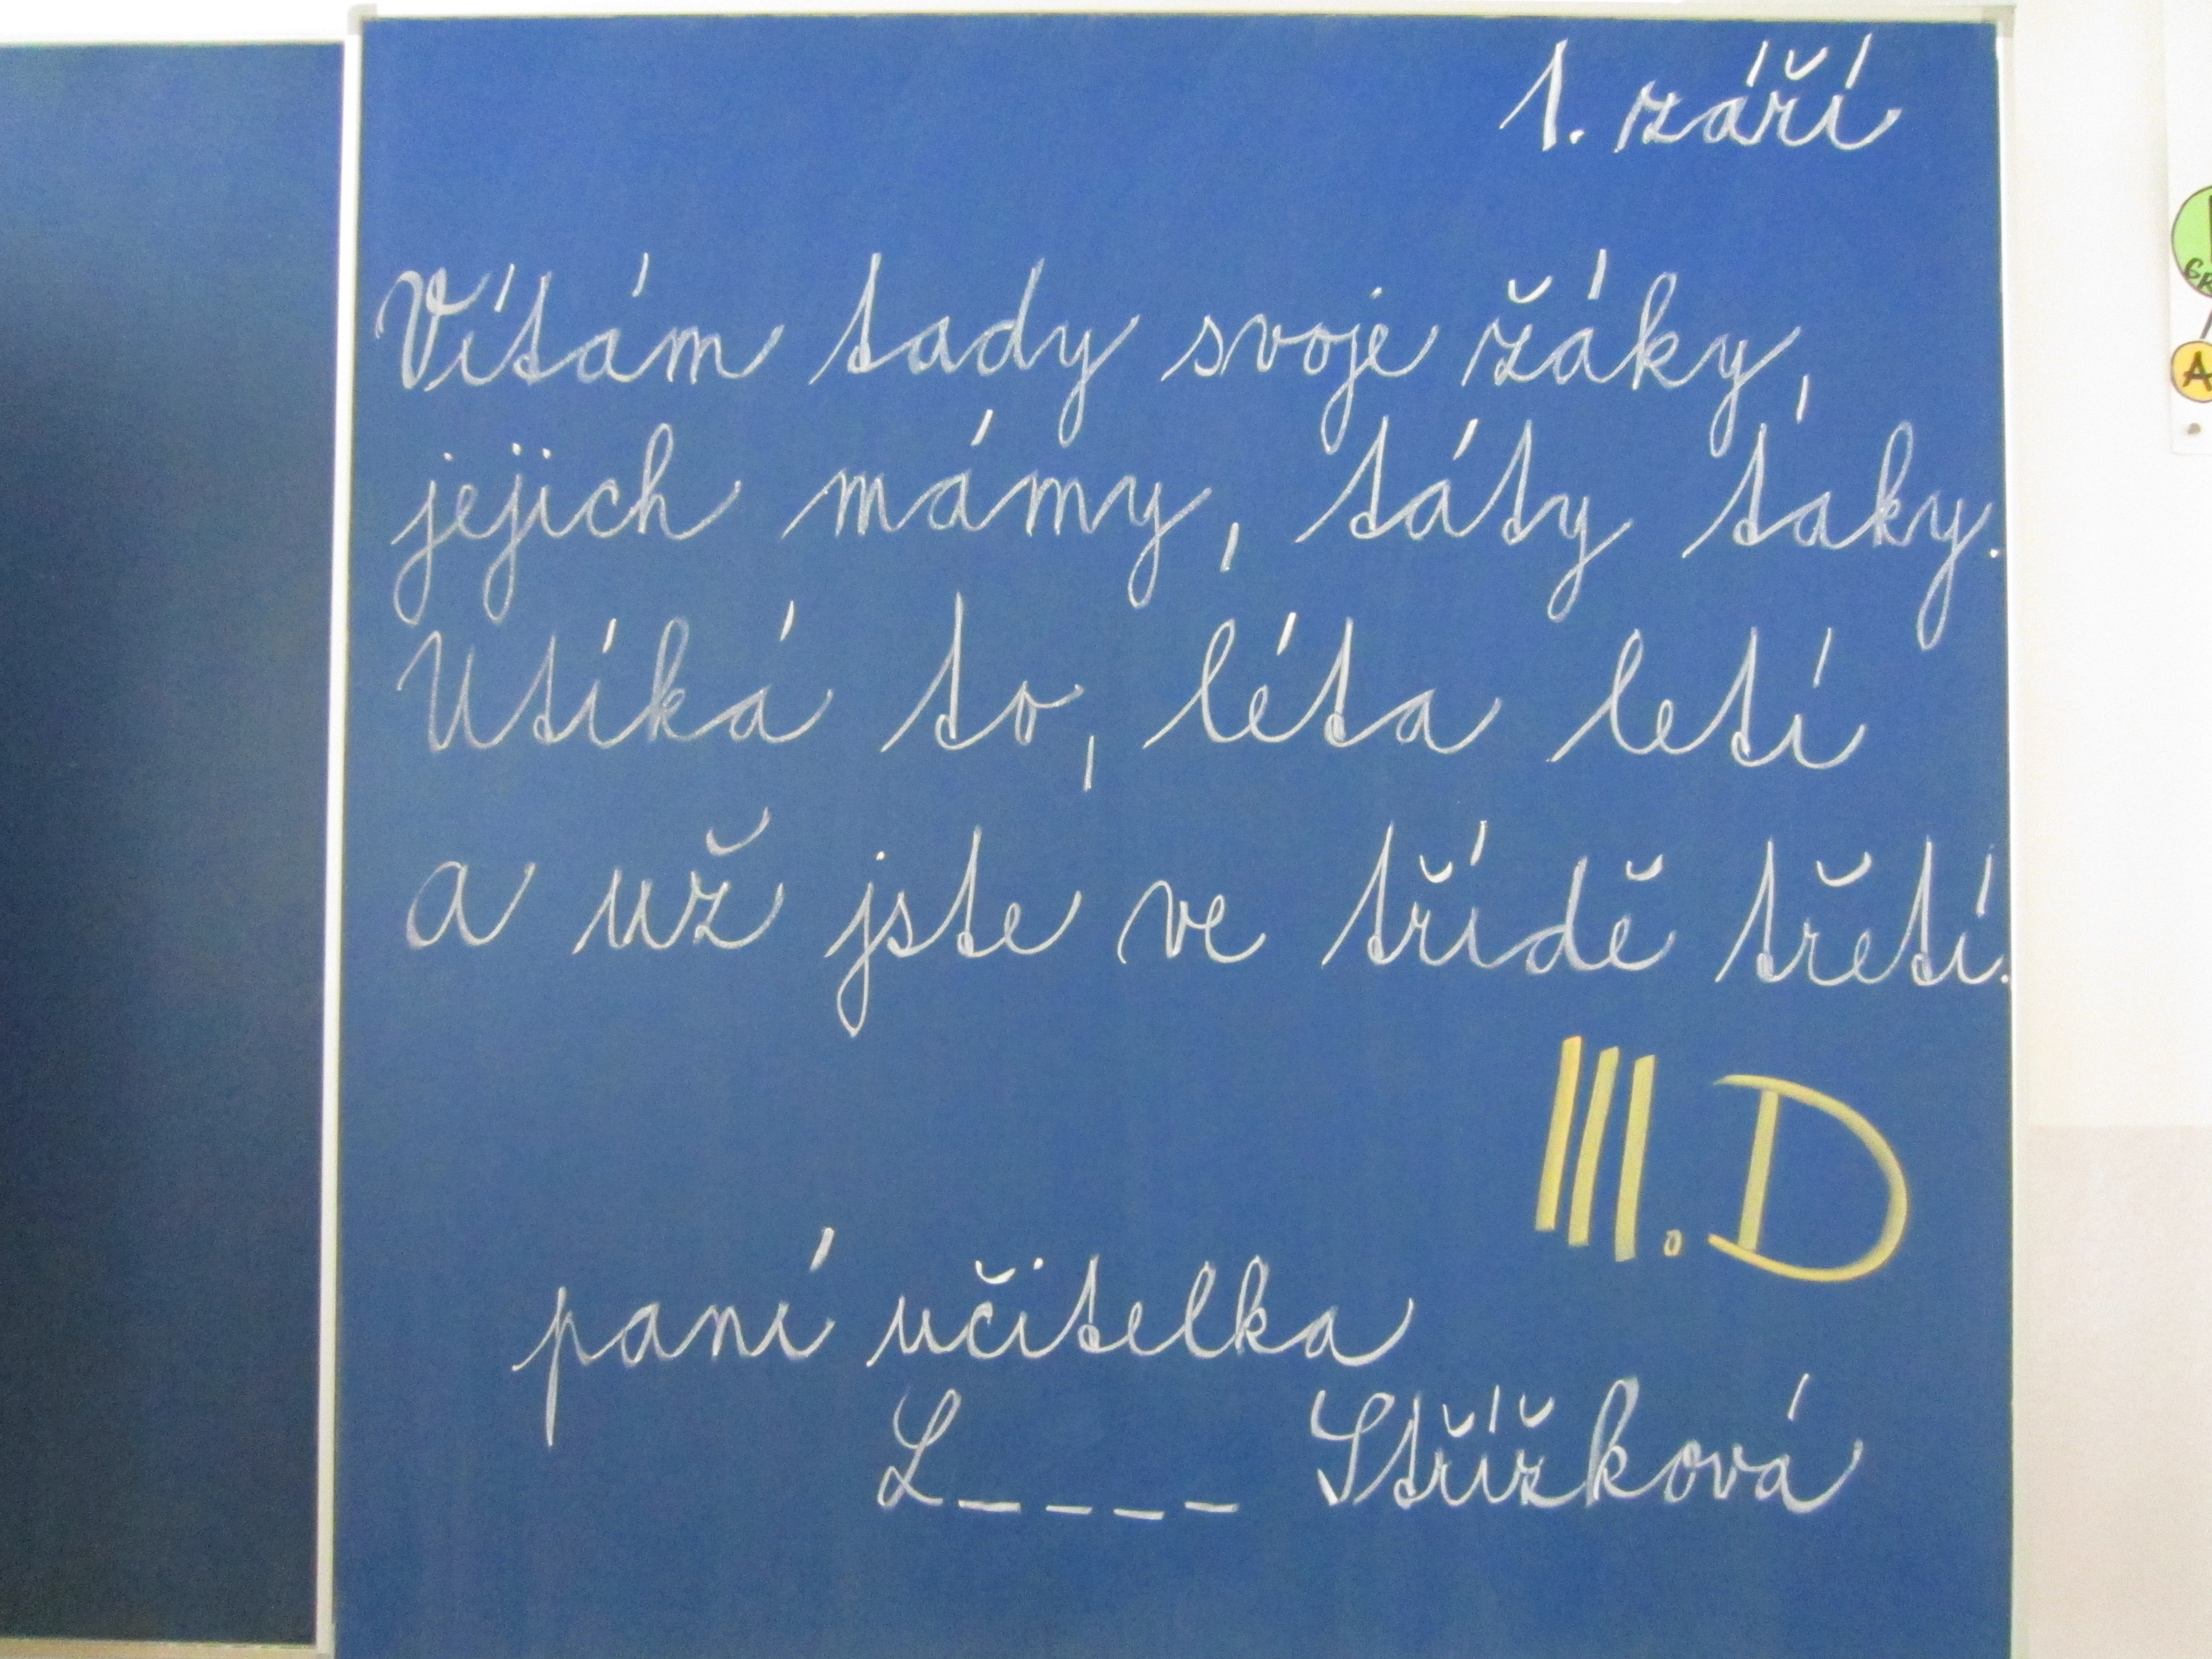 1. září
Vítám tady svoje žáky,
jejich mámy, táty taky.
Utíká to, léta letí
a už jste ve třídě třetí.
III. D
paní učitelka
L_ _ _ _ Střížková
A